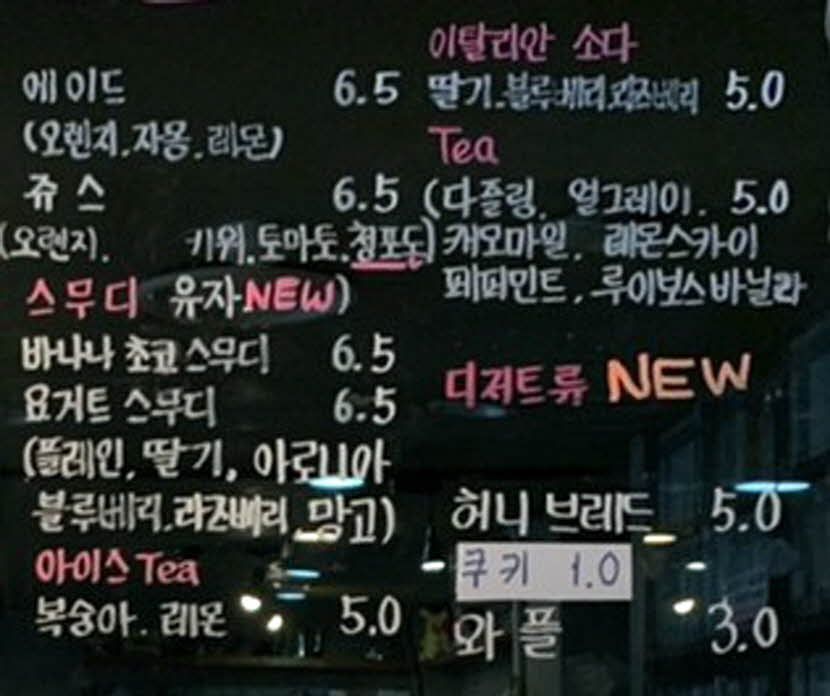 에이드 6.5
(오렌지.자몽.레몬)
쥬스 6.5
(오렌지. 키위.토마토.청포도)
스무디 유자NEW)
바나나 초코 스무디 6.5
요거트 스무디 6.5
(플레인.딸기, 아로니아
블루베리.라즈베리.망고)
아이스 Tea
복숭아. 레몬 5.0
이탈리안 소다
딸기.블루베리.라즈베리 5.0
Tea
(다즐링. 얼그레이. 5.0
캐모마일. 레몬스카이
페퍼민트. 루이보스바닐라
디저트류 NEW
허니 브레드 5.0
쿠키 1.0
와플 3.0